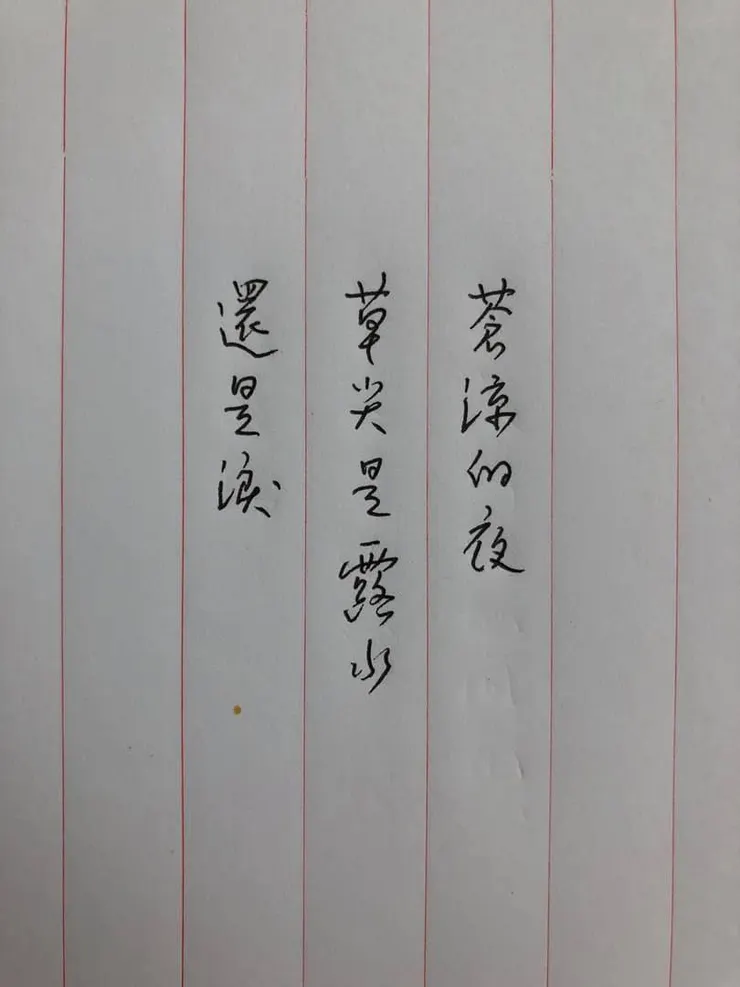 蒼涼的夜
草尖是露水
還是淚